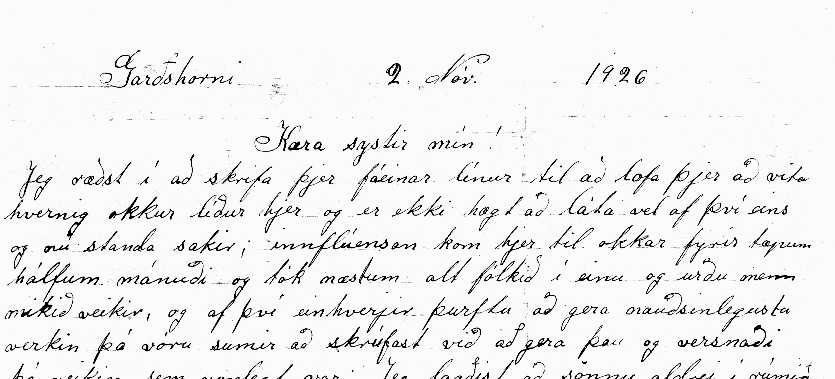 Garðshorni 2. Nóv. 1926
Kæra systir mín!
Jeg ræðst í að skrifa þjer fáeinar línur til að lofa þjer að vita
hvernig okkur líður hjer og er ekki hægt að láta vel af því eins
og nú standa sakir; innflúensan kom hjer til okkar fyrir tæpum
hálfum mánuði og tók næstum alt fólkið í einu og urðu menn
mikið veikir, og af því einhverjir þurftu að gera nauðsinlegustu
verkin þá vóru sumir að skrúfast við að gera þau og versnaði
þá veikin sem var. Jeg lagðist að sönnu aldrei í rúmið